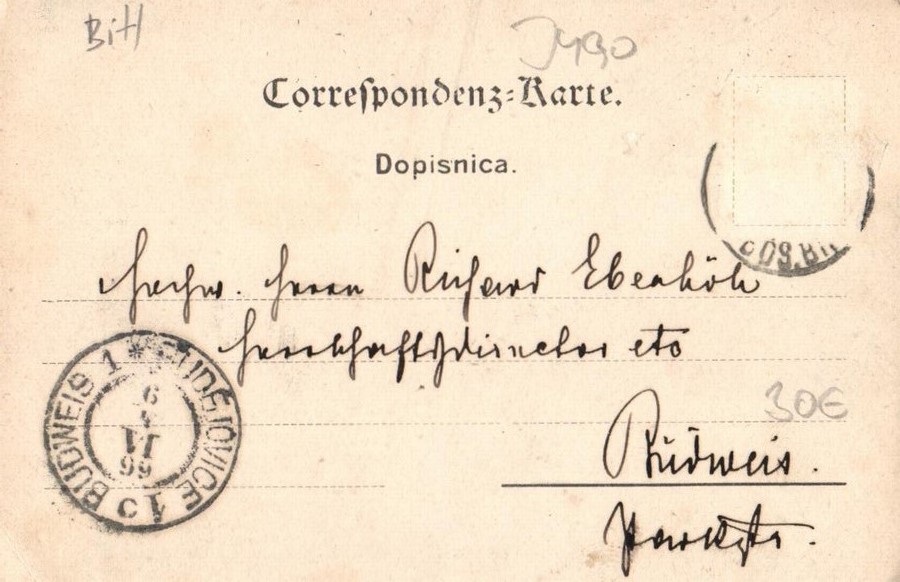 BiH
Correspondenz-Karte.
Dopisnica.
Hochw. Herrn Richard Ebenhöh
Herrschaftsdirector etc
30€
Budweis.
Parkstr.
BUDWEIS 1 * BUDĚJOVICE 1
6
VI
99